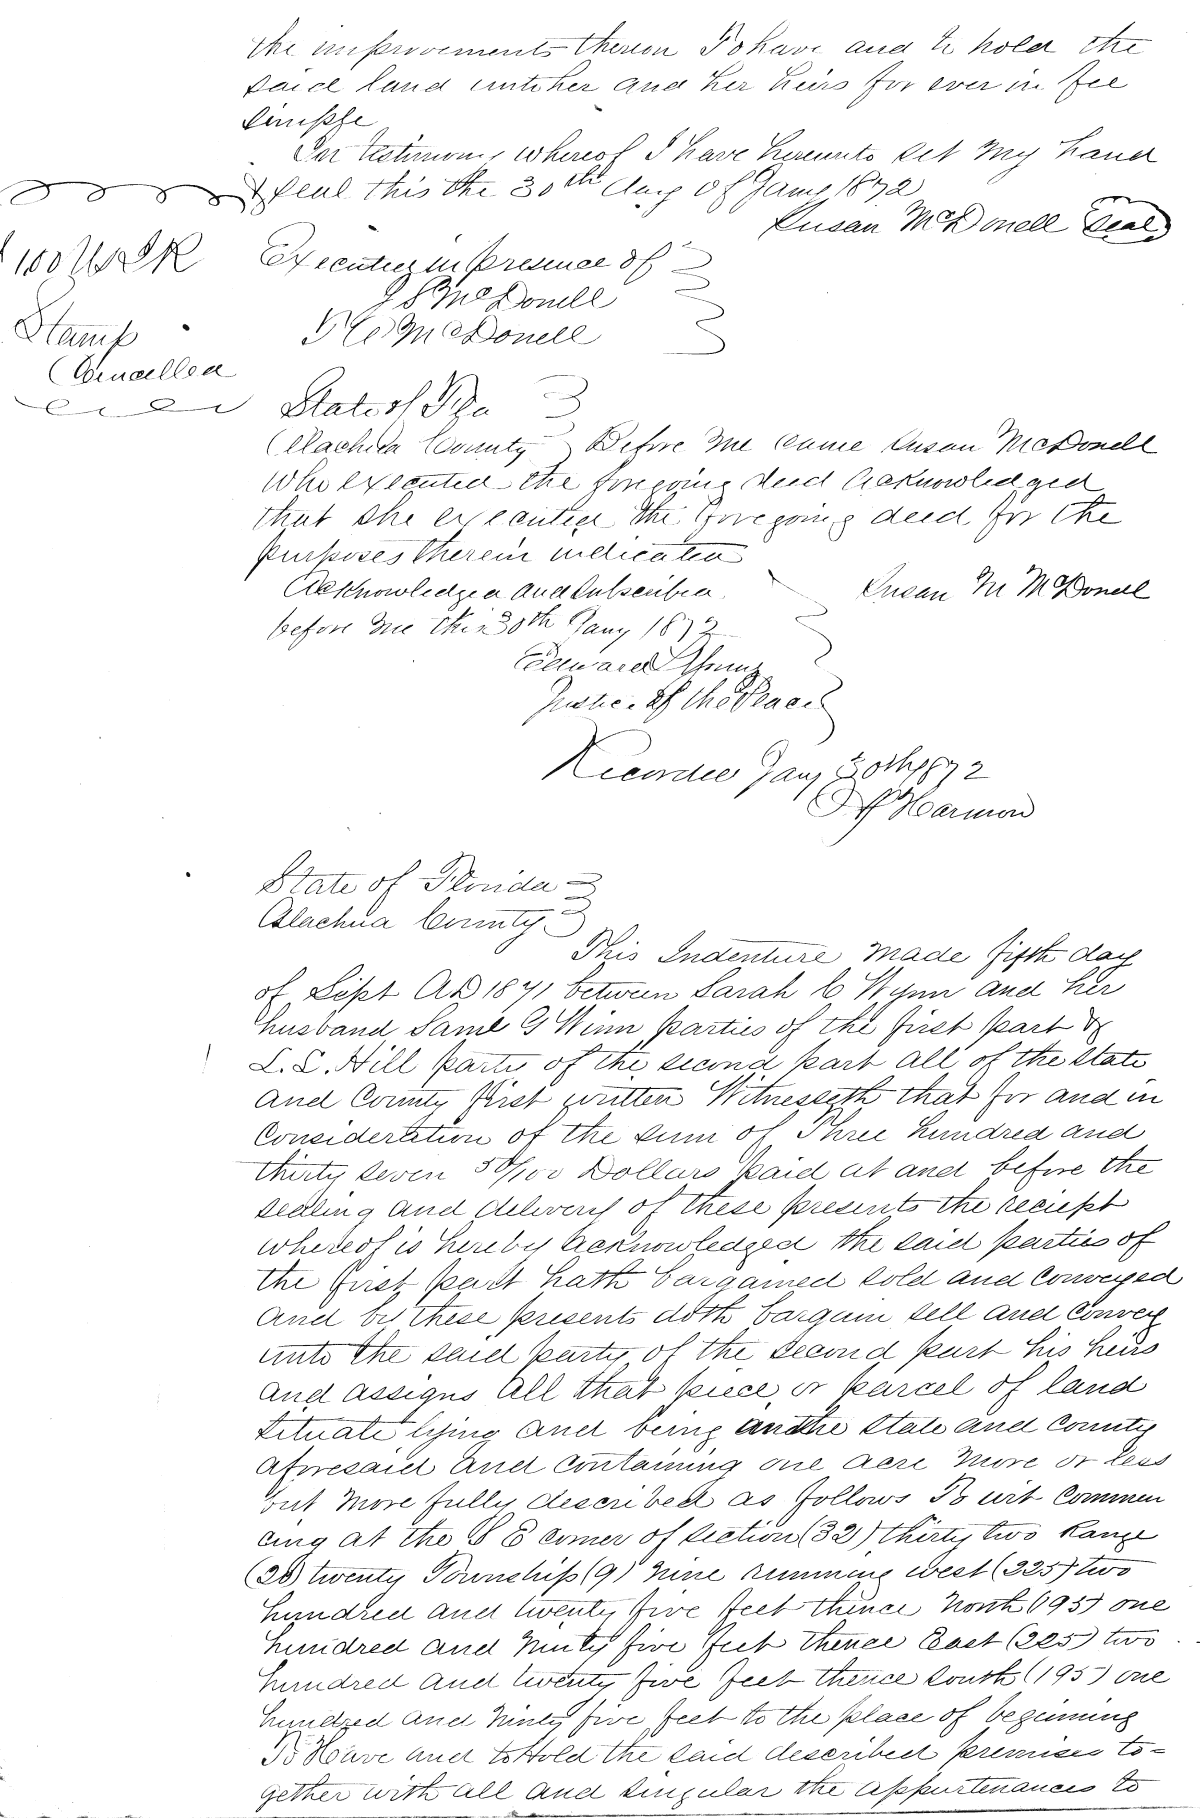 the improvements thereon To have and to hold the
said land unto her and her heirs for ever in fee
simple
In testimony whereof I have hereunto set my hand
& seal this the 30th day of Jany 1872
Susan McDonell Seal
Executed in presence of
McDonell
McDonell
100
Stamp
Cancelled
State of Fla
Alachua County Before me came Susan McDonell
who executed the foregoing deed acknowledged
that she executed the foregoing deed for the
purposes therein indicated
Acknowledged and subscribed
Susan M McDonell
before me this 30th Jany 1872
Edward
Justice of the Peace
Recorded Jany 30th 1872
Harmon
State of Florida
Alachua County
This Indenture made fifth day
of Sept AD 1871 between Sarah C Wynn and her
husband Saml G Winn parties of the first part &
L. C. Hill party of the second part all of the state
and County first written Witnesseth that for and in
Consideration of the sum of Three hundred and
thirty seven 50/100 Dollars paid at and before the
sealing and delivery of these presents the reciept
whereof is hereby acknowledged the said parties of
the first part hath bargained sold and conveyed
and by these presents doth bargain sell and convey
unto the said party of the second part his heirs
and assigns all that piece or parcel of land
situate lying and being in the state and county
aforesaid and containing one acre more or less
but more fully described as follows To wit commen
cing at the S E corner of section (32) thirty two Range
(20) twenty Township (9) nine running west (225) two
hundred and twenty five feet thence North (195) one
hundred and ninty five feet thence East (225) two
hundred and twenty five feet thence south (195) one
hundred and ninty five feet to the place of beginning
To Have and to Hold the said described premises to=
gether with all and singular the appurtenances to